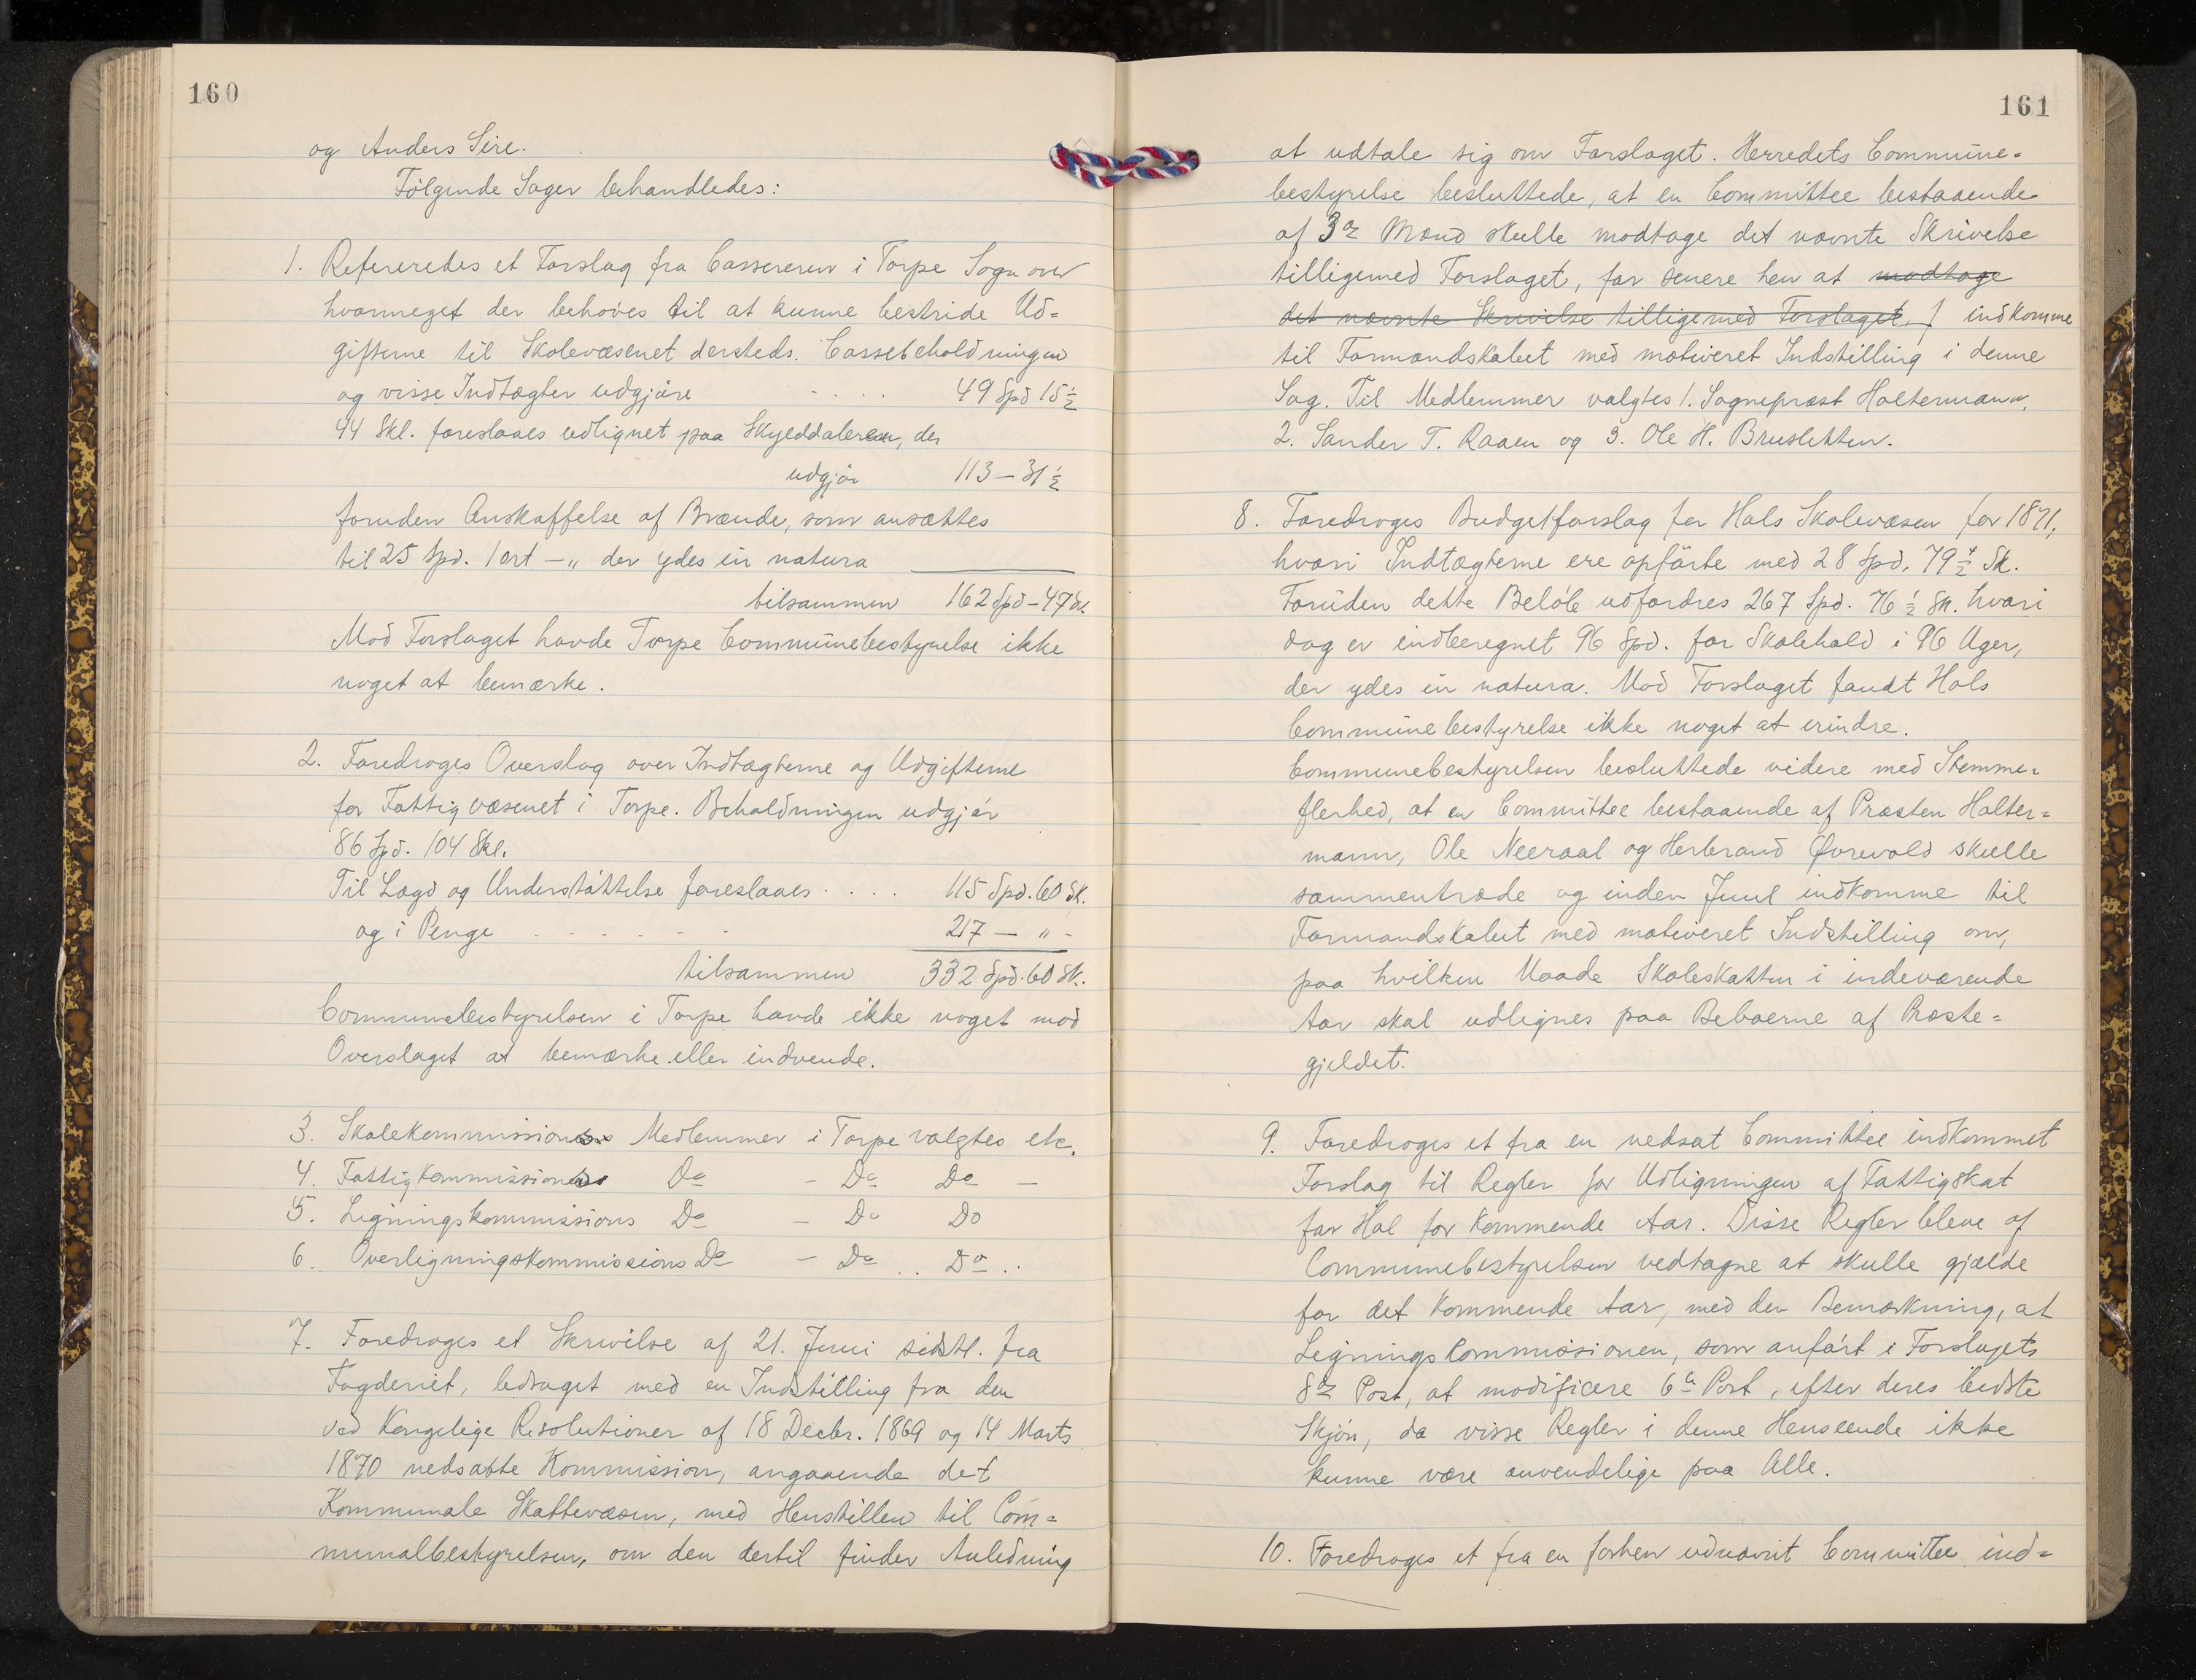 160
og Anders Sire.
Følgende Sager behandledes:
1. Refereredes et Forslag fra Cassereren i Torpe Sogn over
hvormeget der behøves til at kunne bestride Ud=
gifterne til Skolevæsenet dersteds. Cassebeholdningen
og visse Indtægter udgjøre . . . . 49 Spd 15½
44 Skl. foreslaaes udlignet paa Skylddaleren, der
udgjør 113 — 31½
foruden Anskaffelse af Brænde, som ansættes
til 25 Spd. 1 ort — „ der ydes in natura
tilsammen 162 Spd — 47 Sk.
Mod Forslaget havde Torpe Communebestyrelse ikke
noget at bemærke.
2. Foredroges Overslag over Indtægterne og Udgifterne
for Fattigvæsenet i Torpe. Beholdningen udgjør
86 Spd. 104 Skl.
Til Lægd og Understøttelse foreslaaes . . . . 115 Spd. 60 Sk.
og i Penge . . . . . . 217 — „ -
tilsammen 332 Spd. 60 Sk.
Communebestyrelsen i Torpe havde ikke noget mod
Overslaget at bemærke eller indvende.
3. Skolekommissions Medlemmer i Torpe valgtes etc.
4. Fattigkommissions Do - Do Do —
5. Ligningskommissions Do — Do Do
6. Overligningskommissions Do — Do . . Do . .
7. Foredroges et Skrivelse af 21. Juni sidstl. fra
Fogderiet, ledsaget med en Indstilling fra den
ved Kongelige Resolutioner af 18 Decbr. 1869 og 14 Marts
1870 nedsatte Kommission, angaaende det
Kommunale Skattevæsen, med Henstillen til Com=
munalbestyrelsen, om den dertil finder Anledning
161
at udtale sig om Forslaget. Herredets Commune=
bestyrelse besluttede, at en Committee bestaaende
af 3de Mænd skulle modtage det nævnte Skrivelse
tilligemed Forslaget, for senere hen at modtage
det nævnte Skrivelse tilligemed Forslaget. / indkomme
til Formandskabet med motiveret Indstilling i denne
Sag. Til Medlemmer valgtes 1. Sognepræst Holtermann,
2. Sander T. Raaen og 3. Ole H. Brusletten.
8. Foredroges Budgetforslag for Hols Skolevæsen for 1871,
hvori Indtægterne ere opførte med 28 Spd. 79½ Sk.
Foruden dette Beløb udfordres 267 Spd. 76½ Sk. hvori
dog er indberegnet 96 Spd. for Skolehold i 96 Uger,
der ydes in natura. Mod Forslaget fandt Hols
Communebestyrelse ikke noget at erindre.
Communebestyrelsen besluttede videre med Stemme=
flerhed, at en Committee bestaaende af Præsten Holter=
mann, Ole Neeraal og Herbrand Øvrevold skulle
sammentræde og inden Juul indkomme til
Formandskabet med motiveret Indstilling om,
paa hvilken Maade Skoleskatten i indeværende
Aar skal udlignes paa Beboerne af Præste=
gjeldet.
9. Foredroges et fra en nedsat Committee indkommet
Forslag til Regler for Udligningen af Fattigskat
for Hol for Kommende Aar. Disse Regler bleve af
Communebestyrelsen vedtagne at skulle gjælde
for det Kommende Aar, med den Bemærkning, at
Ligningskommissionen, som anført i Forslagets
8de Post, at modificere 6te Post, efter deres bedste
Skjøn, da visse Regler i denne Henseende ikke
kunne være anvendelige paa Alle.
10. Foredroges et fra en forhen udnævnt Committee ind=